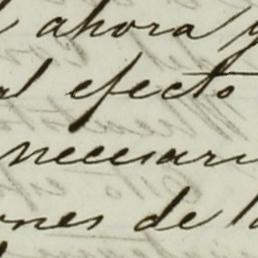 ahora y
al efecto
necesari
ones de l